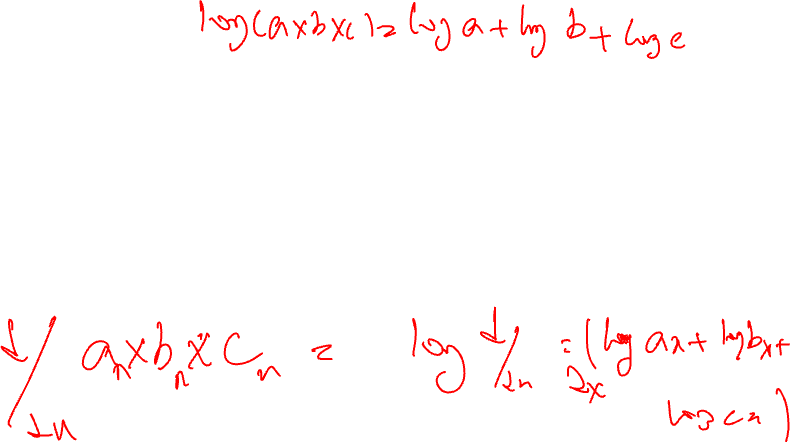 log(a×b×c) = log a + log b + log c
1/2n a_n × b_n × c_n = log 1/2n = (log ax + log bx +
2x log cx)